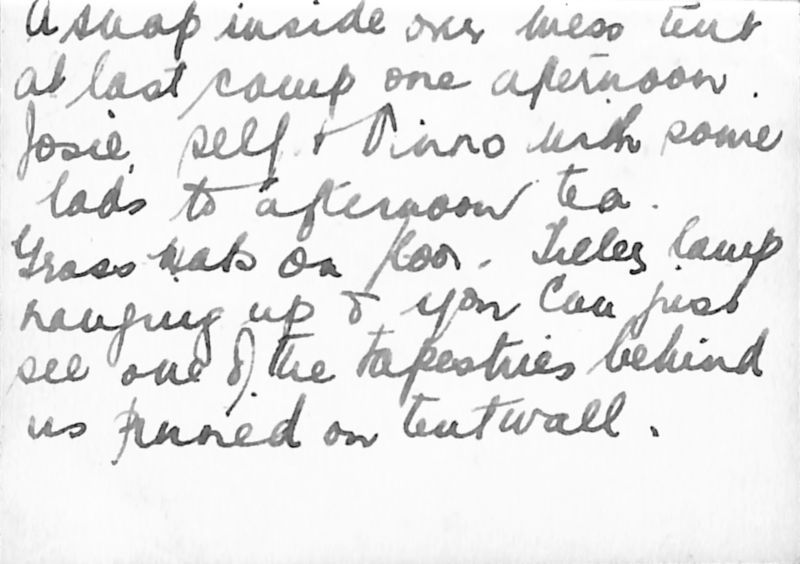 A snap inside our mess tent
at last camp one afternoon.
Josie, self & Pinno with some
lads to afternoon tea.
Grass mats on floor. Tilley lamp
hanging up & you can just
see one of the tapestries behind
us pinned on tentwall.